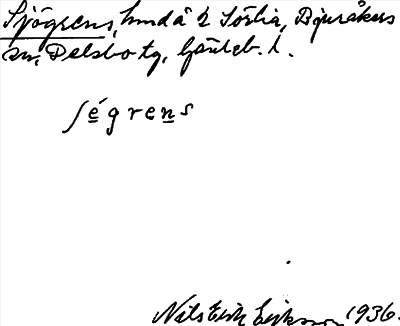 Sjögrens, hmd å 2 Sörlia, Bjuråkers
sn, Delsbo tg, Gävleb. l.
ʃégrens
Nils Erik Eriksson 1936.